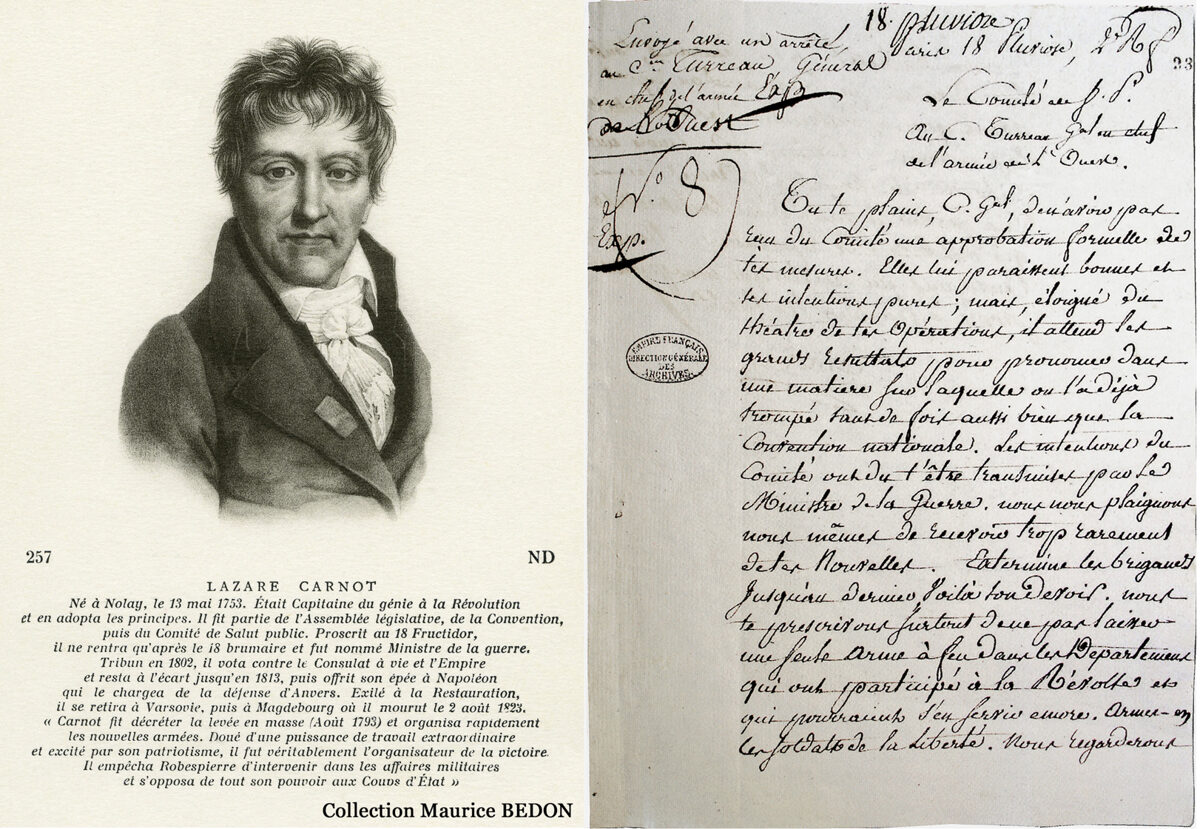 257
ND
LAZARE CARNOT
Né à Nolay, le 13 mai 1753. Était Capitaine du génie à la Révolution
et en adopta les principes. Il fit partie de l'Assemblée législative, de la Convention,
puis du Comité de Salut public. Proscrit au 18 Fructidor,
il ne rentra qu'après le 18 brumaire et fut nommé Ministre de la guerre.
Tribun en 1802, il vota contre le Consulat à vie et l'Empire
et resta à l'écart jusqu'en 1813, puis offrit son épée à Napoléon
qui le chargea de la défense d'Anvers. Exilé à la Restauration,
il se retira à Varsovie, puis à Magdebourg où il mourut le 2 août 1823.
« Carnot fit décréter la levée en masse (Août 1793) et organisa rapidement
les nouvelles armées. Doué d'une puissance de travail extraordinaire
et excité par son patriotisme, il fut véritablement l'organisateur de la victoire.
Il empêcha Robespierre d'intervenir dans les affaires militaires
et s'opposa de tout son pouvoir aux Coups d'État »
Collection Maurice BEDON
18. pluviose
Envoyé avec un arrêté
au Cen Turreau Général
en chef de l'armée Exp
de l'Ouest
N.o 8
Exp.
EMPIRE FRANÇAIS
DIRECTION GÉNÉRALE
DES
ARCHIVES
aris 18 Pluviose, 2
23
Le Comité de S. P.
Au C. Turreau Gal en chef
de l'armée de l'Ouest.
Tu te plains, C. Gal, de n'avoir pas
reçu du Comité une approbation formelle de
tes mesures. Elles lui paraissent bonnes et
tes intentions pures ; mais, éloigné du
théatre de tes Opérations, il attend les
grands resultats pour prononcer dans
une matiere sur laquelle on l'a déjà
trompé tant de fois aussi bien que la
Convention nationale. Les intentions du
Comité ont du t'être transmises par le
Ministre de la Guerre. nous nous plaignons
nous mêmes de recevoir trop rarement
de tes Nouvelles. Extermine les brigands
jusqu'au dernier Voilà ton devoir. nous
te prescrivons surtout de ne pas laisser
une seule Arme à feu dans les Départemens
qui ont participé à la Révolte et
qui pourraient s'en servir encore. Armes-en
les soldats de la Liberté. Nous regarderons